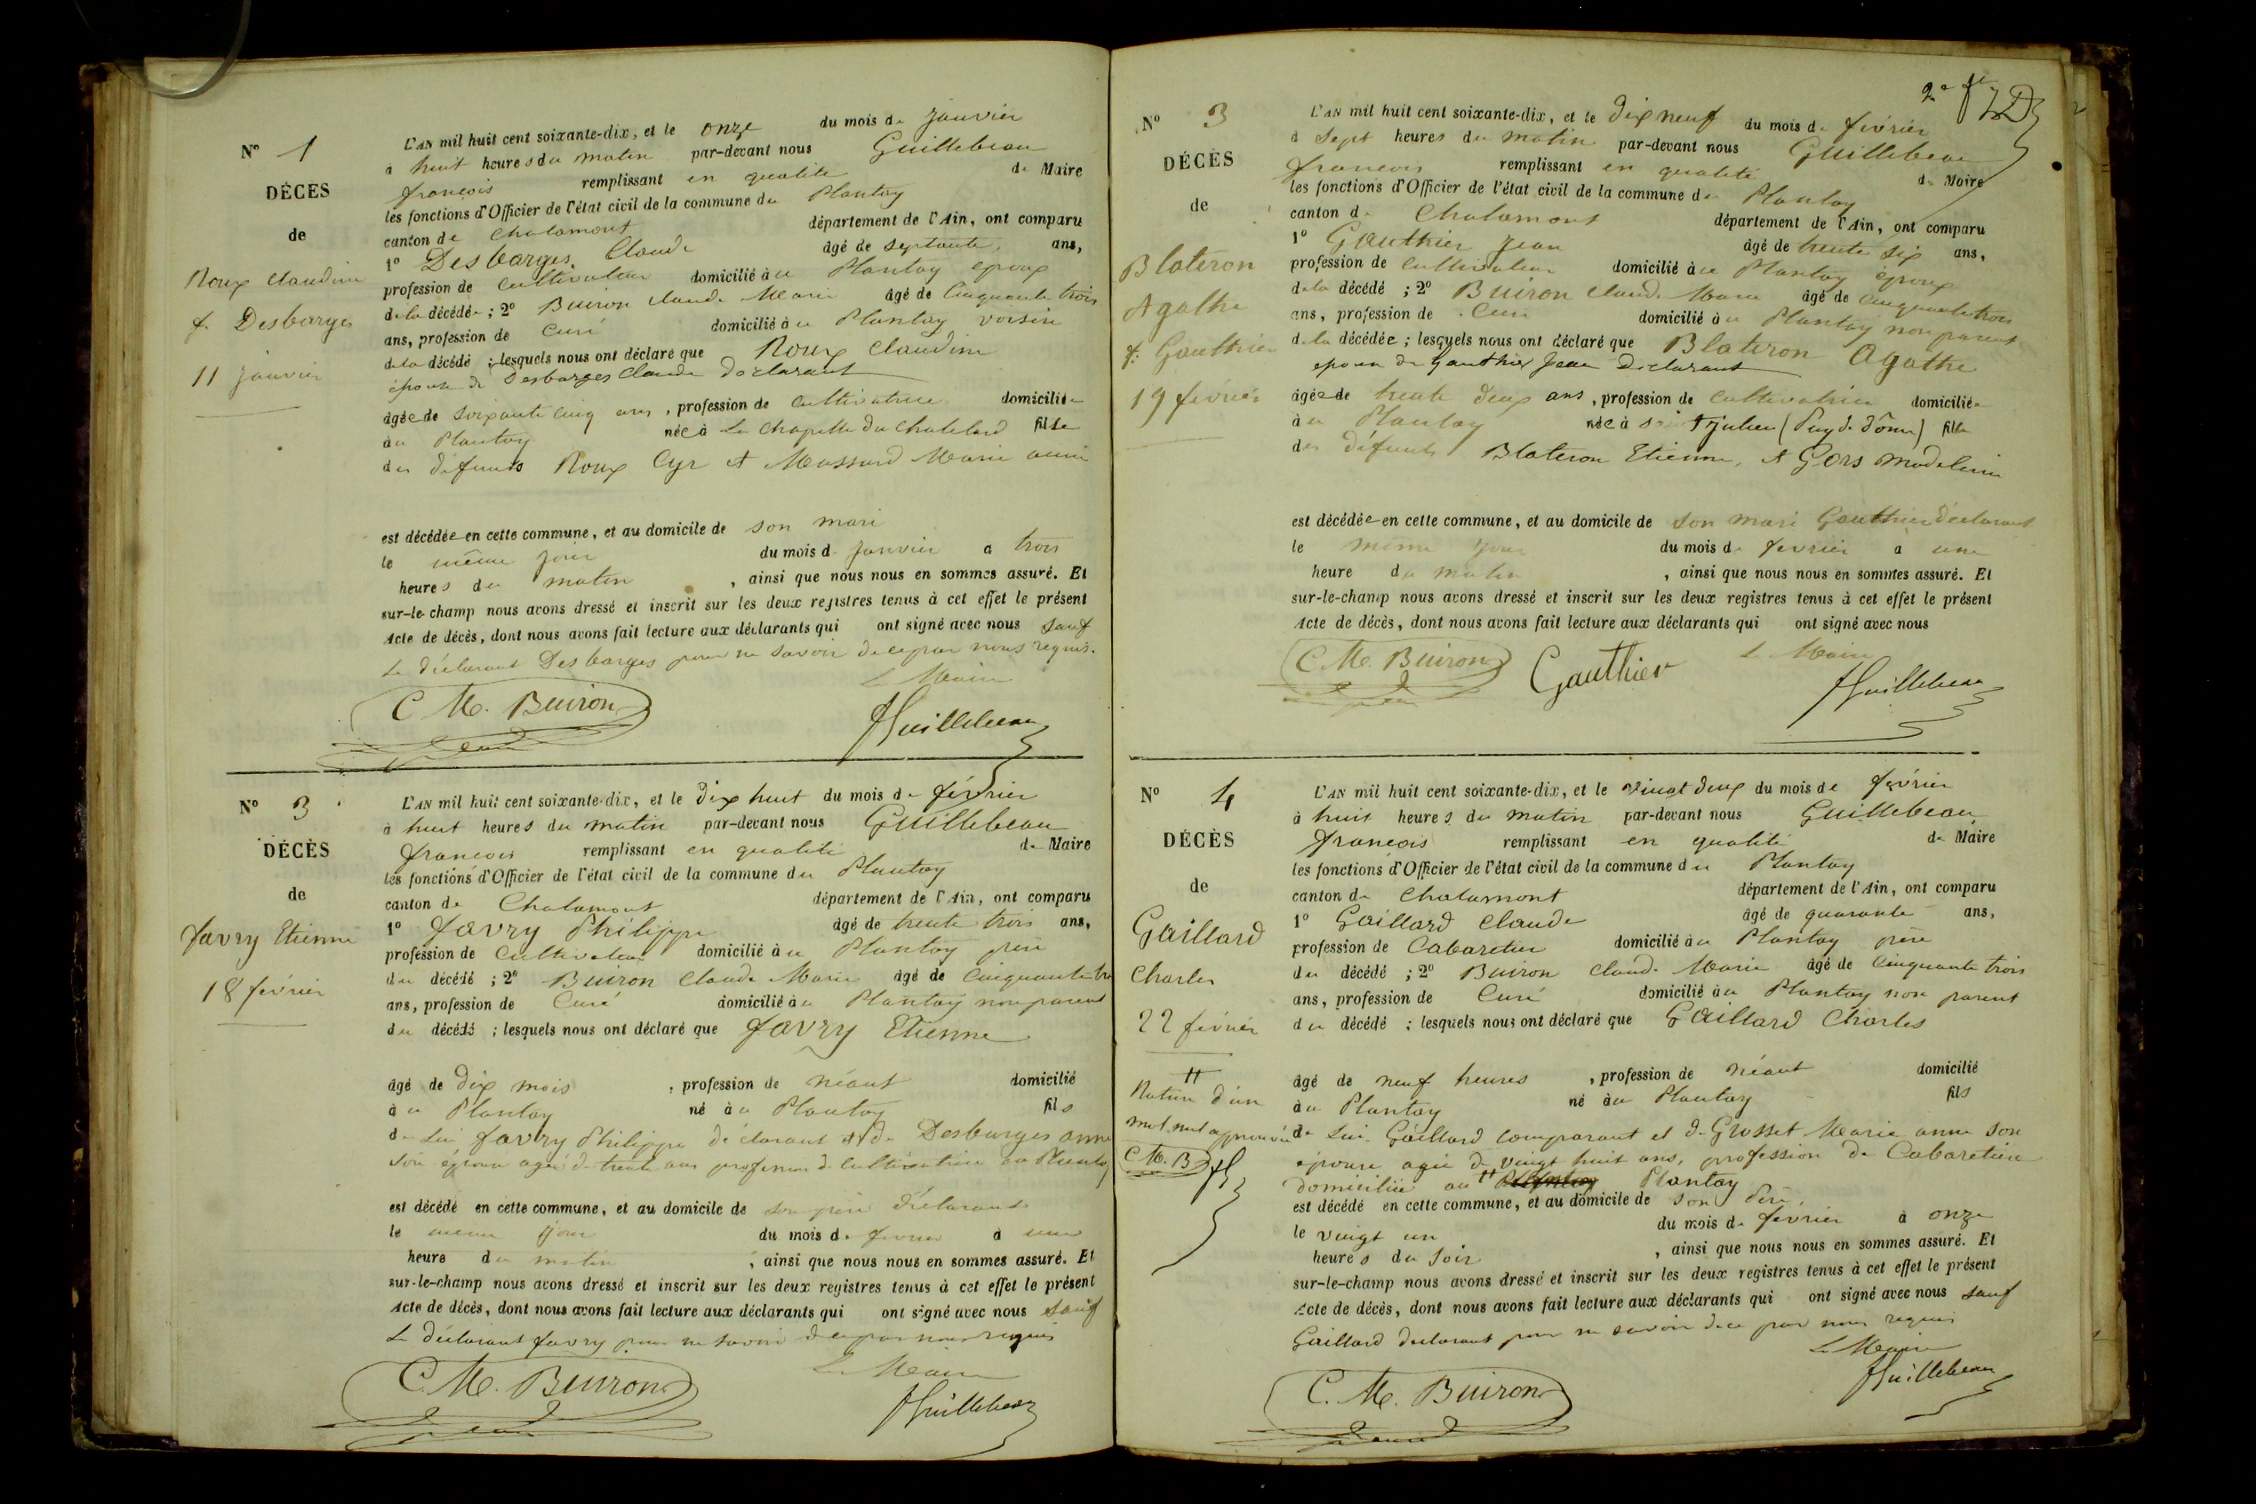 N° 1
DÉCÈS
de
Roux Claudine
f. Desbarges
11 janvier
L'AN mil huit cent soixante-dix, et le onze du mois de janvier
à huit heures du matin par-devant nous Guillebeau
françois remplissant en qualité de Maire
les fonctions d'Officier de l'état civil de la commune du Plantay
canton de Chalamont département de l'Ain, ont comparu
1° Desbarges Claude âgé de septante ans,
profession de cultivateur domicilié au Plantay époux
de la décédée ; 2° Buiron Claude Marie âgé de Cinquante trois
ans, profession de Curé domicilié au Plantay voisin
de la décédé ; lesquels nous ont déclaré que Roux Claudine
épouse de Desbarges Claude déclarant
âgée de soixante cinq ans, profession de cultivatrice domiciliée
au Plantay née à La Chapelle du Chatelard fille
des défunts Roux Cyr et Massard Marie
est décédée en cette commune, et au domicile de son mari
le même jour du mois de janvier a trois
heures du matin, ainsi que nous nous en sommes assuré. Et
sur-le-champ nous avons dressé et inscrit sur les deux registres tenus à cet effet le présent
Acte de décès, dont nous avons fait lecture aux déclarants qui ont signé avec nous sauf
Le déclarant Desbarges pour ne savoir de ce par nous requis.
Le Maire
C M. Buiron
f Guillebeau
N° 3
DÉCÈS
de
favry Etienne
18 février
L'AN mil huit cent soixante-dix, et le dix huit du mois de février
à huit heures du matin par-devant nous Guillebeau
françois remplissant en qualité de Maire
les fonctions d'Officier de l'état civil de la commune du Plantay
canton de Chalamont département de l'Ain, ont comparu
1° favry Philippe âgé de trente trois ans,
profession de Cultivateur domicilié au Plantay père
du décédé ; 2° Buiron Claude Marie âgé de Cinquante tro
ans, profession de Curé domicilié au Plantay non parent
du décédé ; lesquels nous ont déclaré que favry Etienne
âgé de dix mois, profession de néant domicilié
au Plantay né au Plantay fils
de Lui favry Philippe déclarant et de Desbarges anne
son épouse agée de trente ans profession de cultivatrice au Plantay
est décédé en cette commune, et au domicile de son père déclarant
le même jour du mois de fevrier à une
heure du matin, ainsi que nous nous en sommes assuré. Et
sur-le-champ nous avons dressé et inscrit sur les deux registres tenus à cet effet le présent
Acte de décès, dont nous avons fait lecture aux déclarants qui ont signé avec nous sauf
Le déclarant favry pour ne savoir de ce par nous requis
Le Maire
C. M. Buiron
f Guillebeau
2e ft
N° 3
DÉCÈS
de
Blateron
Agathe
f. Gauthier
19 février
L'AN mil huit cent soixante-dix, et le dix neuf du mois de février
à sept heures du matin par-devant nous Guillebeau
françois remplissant en qualité de Maire
les fonctions d'Officier de l'état civil de la commune du Plantay
canton de Chalamont département de l'Ain, ont comparu
1° Gauthier Jean âgé de trente six ans,
profession de cultivateur domicilié au Plantay époux
de la décédé ; 2° Buiron Claude Marie âgé de cinquante trois
ans, profession de Curé domicilié au Plantay non parent
de la décédée ; lesquels nous ont déclaré que Blateron Agathe
epouse de Gauthier Jean déclarant
âgée de trente deux ans, profession de cultivatrice domiciliée
au Plantay née à saint julien (Puy de Dôme) fille
des défunts Blateron Etienne, et Gors Madeleine
est décédée en cette commune, et au domicile de son mari Gauthier déclarant
le même jour du mois de fevrier a une
heure du matin, ainsi que nous nous en sommes assuré. Et
sur-le-champ nous avons dressé et inscrit sur les deux registres tenus à cet effet le présent
Acte de décès, dont nous avons fait lecture aux déclarants qui ont signé avec nous
Le Maire
C. M. Buiron
Gauthier
f Guillebeau
N° 4
DÉCÈS
de
Gaillard
Charles
22 février
Rature d'un
mot nul approuvé
C. M. B
L'AN mil huit cent soixante-dix, et le vingt deux du mois de février
à huit heures du matin par-devant nous Guillebeau
françois remplissant en qualité de Maire
les fonctions d'Officier de l'état civil de la commune du Plantay
canton de Chalamont département de l'Ain, ont comparu
1° Gaillard Claude âgé de quarante ans,
profession de Cabaretier domicilié au Plantay père
du décédé ; 2° Buiron Claude Marie âgé de Cinquante trois
ans, profession de Curé domicilié au Plantay non parent
du décédé ; lesquels nous ont déclaré que Gaillard Charles
âgé de neuf heures, profession de néant domicilié
au Plantay né au Plantay fils
de Lui Gaillard comparant et de Grosset Marie anne son
épouse agée de vingt huit ans, profession de Cabaretière
domiciliée au Plantay
est décédé en cette commune, et au domicile de son Père,
le vingt un du mois de février à onze
heures du soir, ainsi que nous nous en sommes assuré. Et
sur-le-champ nous avons dressé et inscrit sur les deux registres tenus à cet effet le présent
Acte de décès, dont nous avons fait lecture aux déclarants qui ont signé avec nous sauf
Gaillard declarant pour ne savoir de ce par nous requis
Le Maire
C. M. Buiron
f Guillebeau